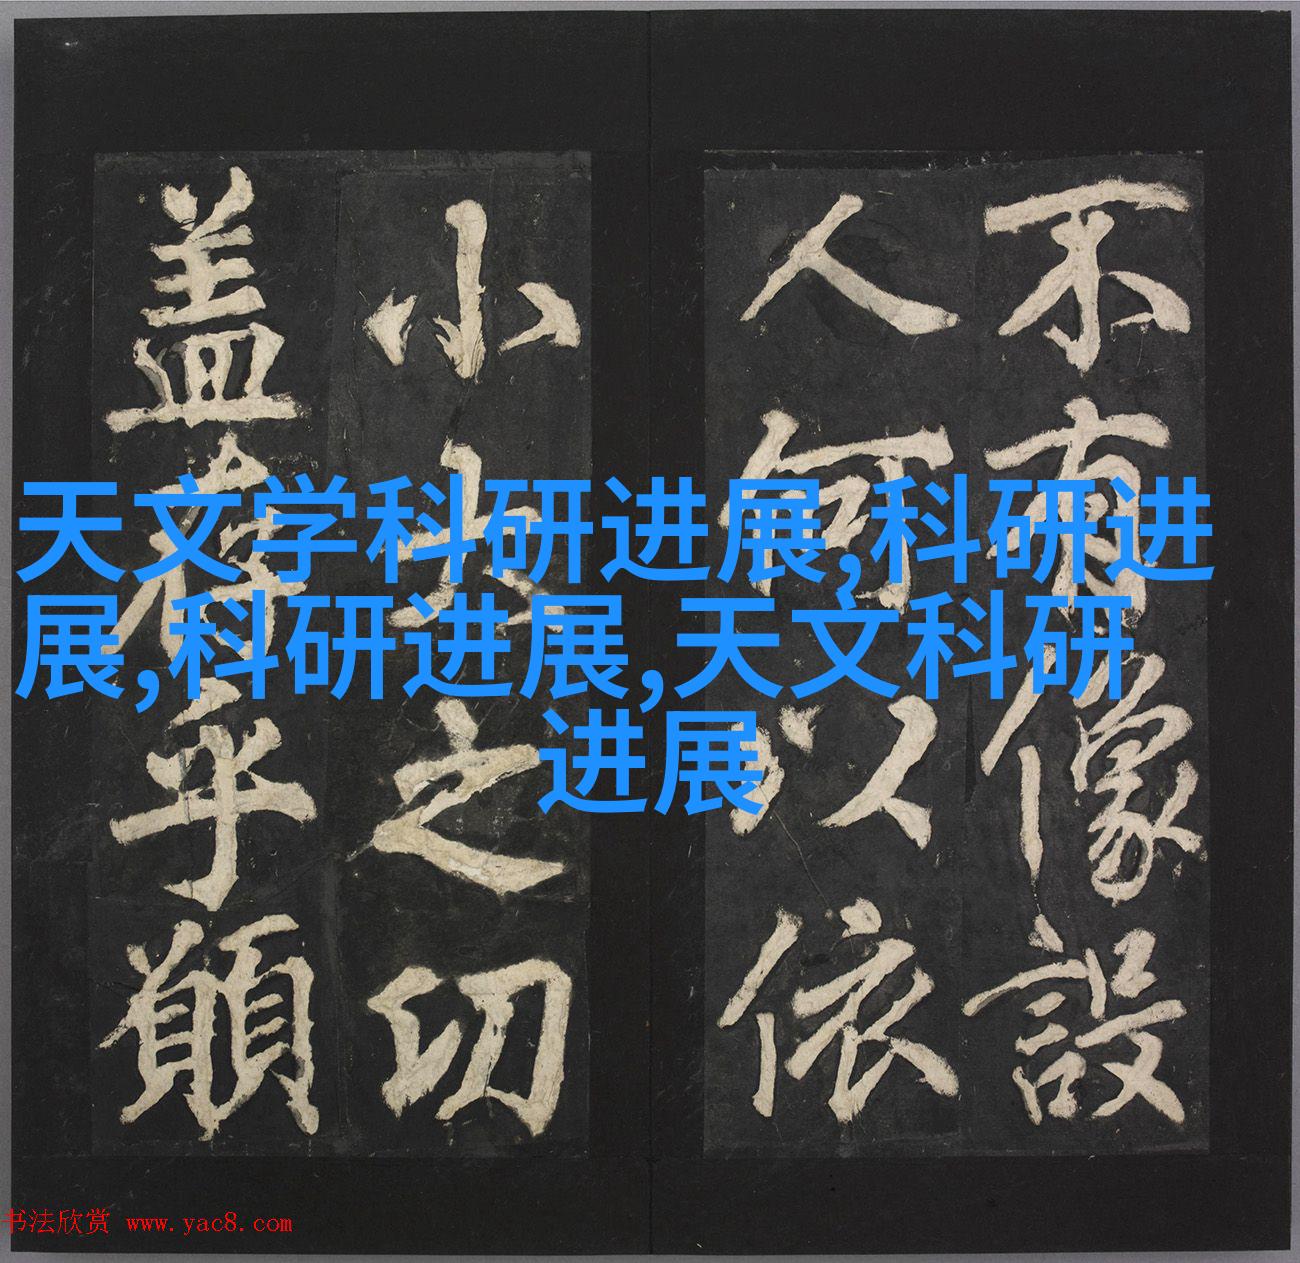 天文学科研进展,科研进
展,科研进展,天文科研
进展
不有像設
人何以依
小大之切
盖存乎願
书法欣赏 www.yac8.com